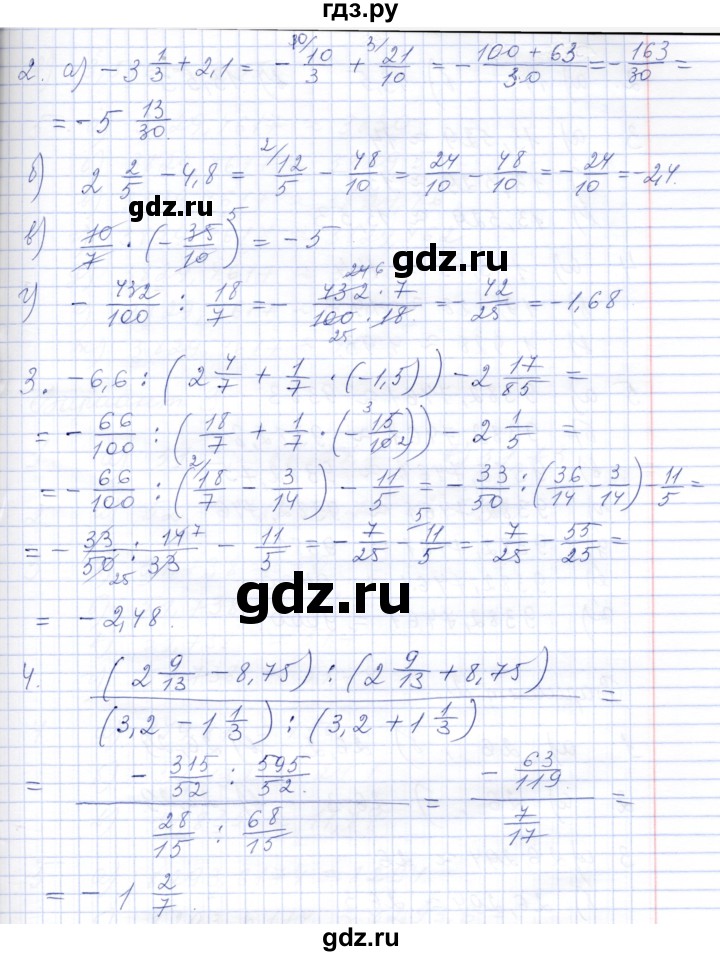 гдз.ру
2. а) -3 1/3 + 2,1 = - 10/10/3 + 3/21/10 = - (100 + 63)/30 = - 163/30 =
= -5 13/30.
б) 2 2/5 - 4,8 = 2/12/5 - 48/10 = 24/10 - 48/10 = - 24/10 = -2,4.
gdz.ru
в) 10/7 · (- 35/10) 5 = -5
gdz.ru
г) - 432/100 : 18/7 = - (432 246 · 7)/(100 25 · 18) = - 42/25 = -1,68
3. -6,6 : (2 4/7 + 1/7 · (-1,5)) - 2 17/85 =
= - 66/100 : (18/7 + 1/7 · (- 15 3/10 2)) - 2 1/5 =
= - 66/100 : (2/18/7 - 3/14) - 11/5 = - 33/50 : (36/14 - 3/14) - 11/5 =
= - 33/50 25 : 14 7/33 - 11/5 = - 7/25 - 5/11/5 = - 7/25 - 55/25 =
gdz.ru
= -2,48.
4. ((2 9/13 - 8,75) : (2 9/13 + 8,75))/((3,2 - 1 1/3) : (3,2 + 1 1/3)) =
= (- 315/52 : 595/52.)/(28/15 : 68/15) = (- 63/119.)/(7/17) =
= -1 2/7.
gdz.ru